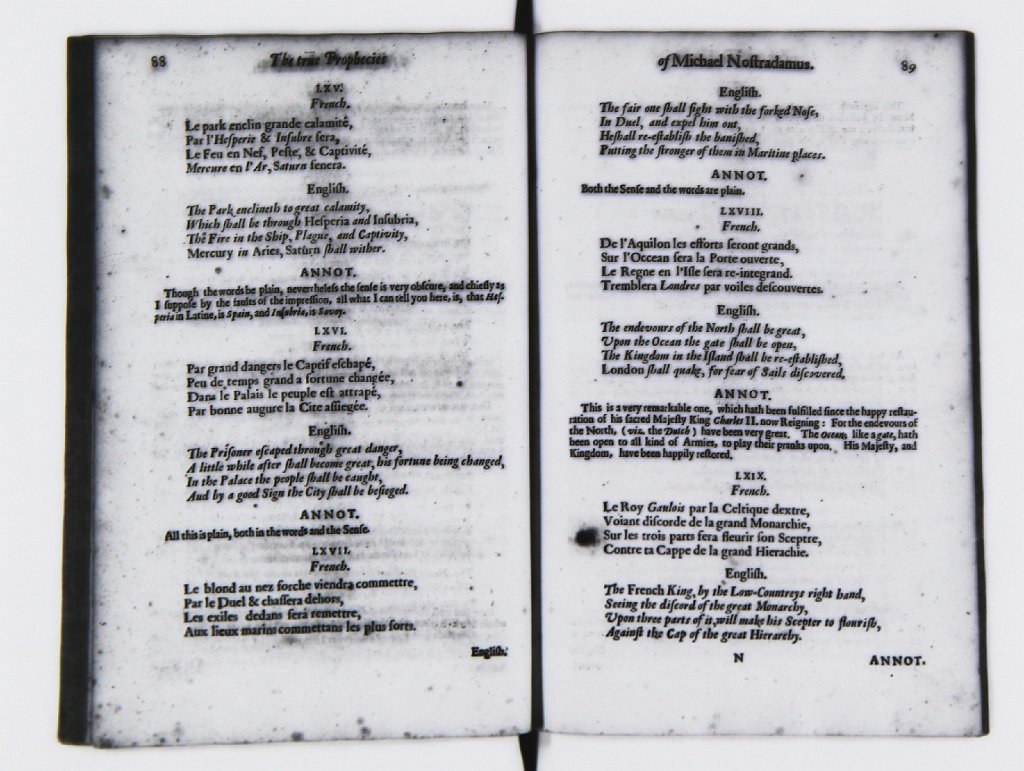 88
The true Prophecies
LXV.
French.
Le park enclin grande calamité,
Par l'Hesperie & Insubre sera,
Le Feu en Nef, Peste, & Captivité,
Mercure en l'Ar, Saturn fenera.
English.
The Park enclineth to great calamity,
Which shall be through Hesperia and Insubria,
The Fire in the Ship, Plague, and Captivity,
Mercury in Aries, Saturn shall wither.
ANNOT.
Though the words be plain, nevertheless the sense is very obscure, and chiefly as
I suppose by the faults of the impression, all what I can tell you here, is, that Hes-
peria in Latine, is Spain, and Insubria, is Savoy.
LXVI.
French.
Par grand dangers le Captif eschapé,
Peu de temps grand a fortune changée,
Dans le Palais le peuple est attrapé,
Par bonne augure la Cite assiegée.
English.
The Prisoner escaped through great danger,
A little while after shall become great, his fortune being changed,
In the Palace the people shall be caught,
Aud by a good Sign the City shall be besieged.
ANNOT.
All this is plain, both in the words and the Sense.
LXVII.
French.
Le blond au nez forche viendra commettre,
Par le Duel & chassera dehors,
Les exiles dedans sera remettre,
Aux lieux marins commettans les plus forts.
English.
of Michael Nostradamus.
89
English.
The fair one shall fight with the forked Nose,
In Duel, and expel him out,
Heshall re-establish the banished,
Putting the stronger of them in Maritine places.
ANNOT.
Both the Sense and the words are plain.
LXVIII.
French.
De l'Aquilon les efforts seront grands,
Sur l'Occean sera la Porte ouverte,
Le Regne en l'Isle sera re-integrand.
Tremblera Londres par voiles descouvertes.
English.
The endevours of the North shall be great,
Upon the Ocean the gate shall be open,
The Kingdom in the Island shall be re-established,
London shall quake, for fear of Sails discovered.
ANNOT.
This is a very remarkable one, which hath been fulfilled since the happy restau-
ration of his sacred Majesty King Charles II. now Reigning: For the endevours of
the North, (viz. the Dutch) have been very great. The Ocean, like a gate, hath
been open to all kind of Armies, to play their pranks upon. His Majesty, and
Kingdom, have been happily restored.
LXIX.
French.
Le Roy Gaulois par la Celtique dextre,
Voiant discorde de la grand Monarchie,
Sur les trois parts fera fleurir son Sceptre,
Contre ta Cappe de la grand Hierachie.
English.
The French King, by the Low-Countreys right hand,
Seeing the discord of the great Monarchy,
Upon three parts of it, will make his Scepter to flourish,
Against the Cap of the great Hierarchy.
N
ANNOT.